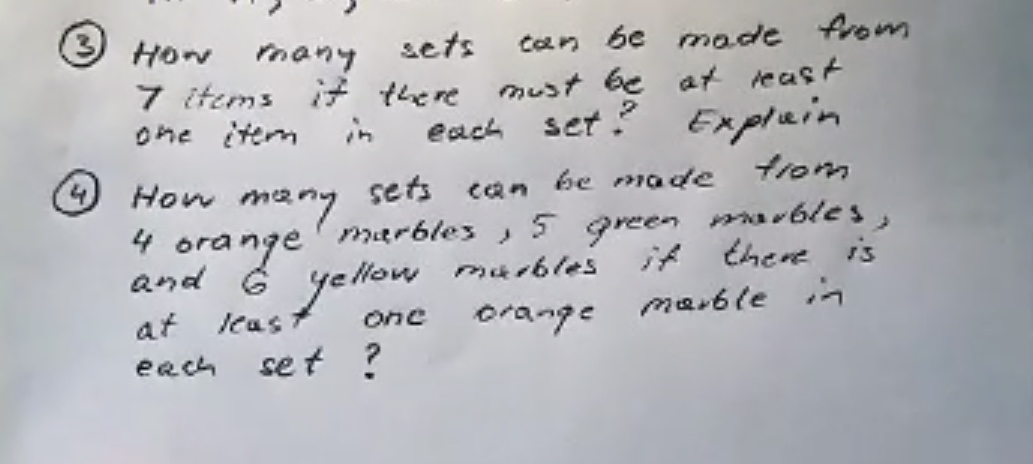 ③ How many sets can be made from
7 items if there must be at least
one item in each set? Explain
④ How many sets can be made from
4 orange marbles, 5 green marbles,
and 6 yellow marbles if there is
at least one orange marble in
each set?